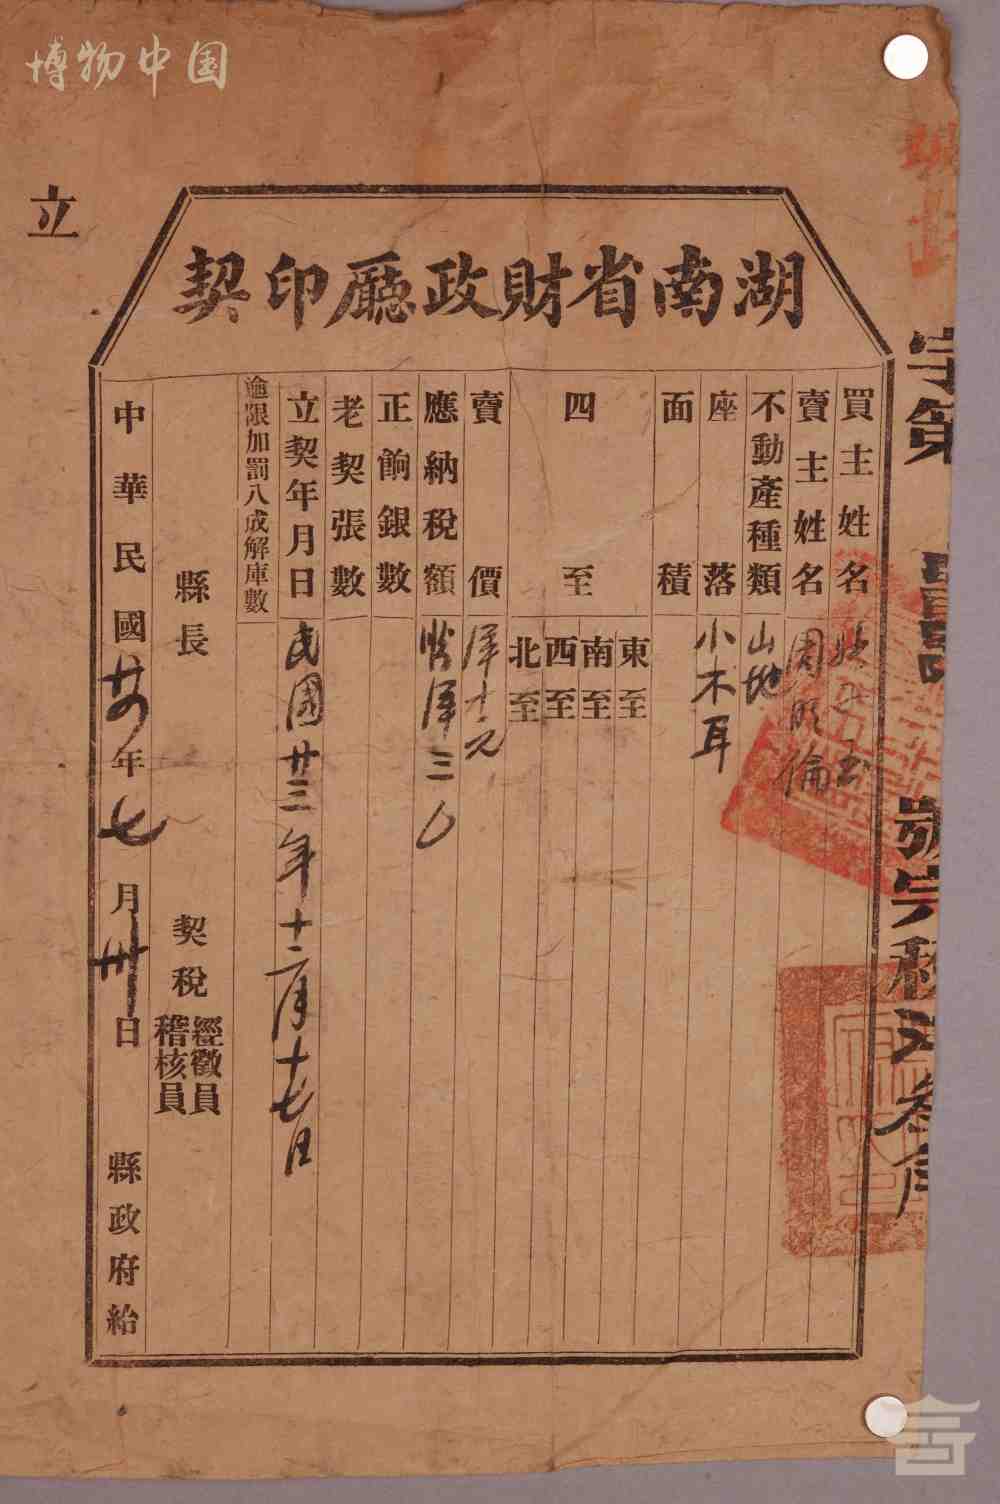 博物中国
立
湖南省財政廳印契
字第
號完稅洋叁角
買主姓名
賣主姓名 周明倫
不動產種類 山地
座落 小木耳
面積
四至
東至
南至
西至
北至
賣價 洋十二元
應納稅額 洋三
正餉銀數
老契張數
立契年月日 民國廿三年十二月十七日
逾限加罰八成解庫數
縣長 契稅
經徵員
稽核員
中華民國廿四年七月卅日 縣政府給